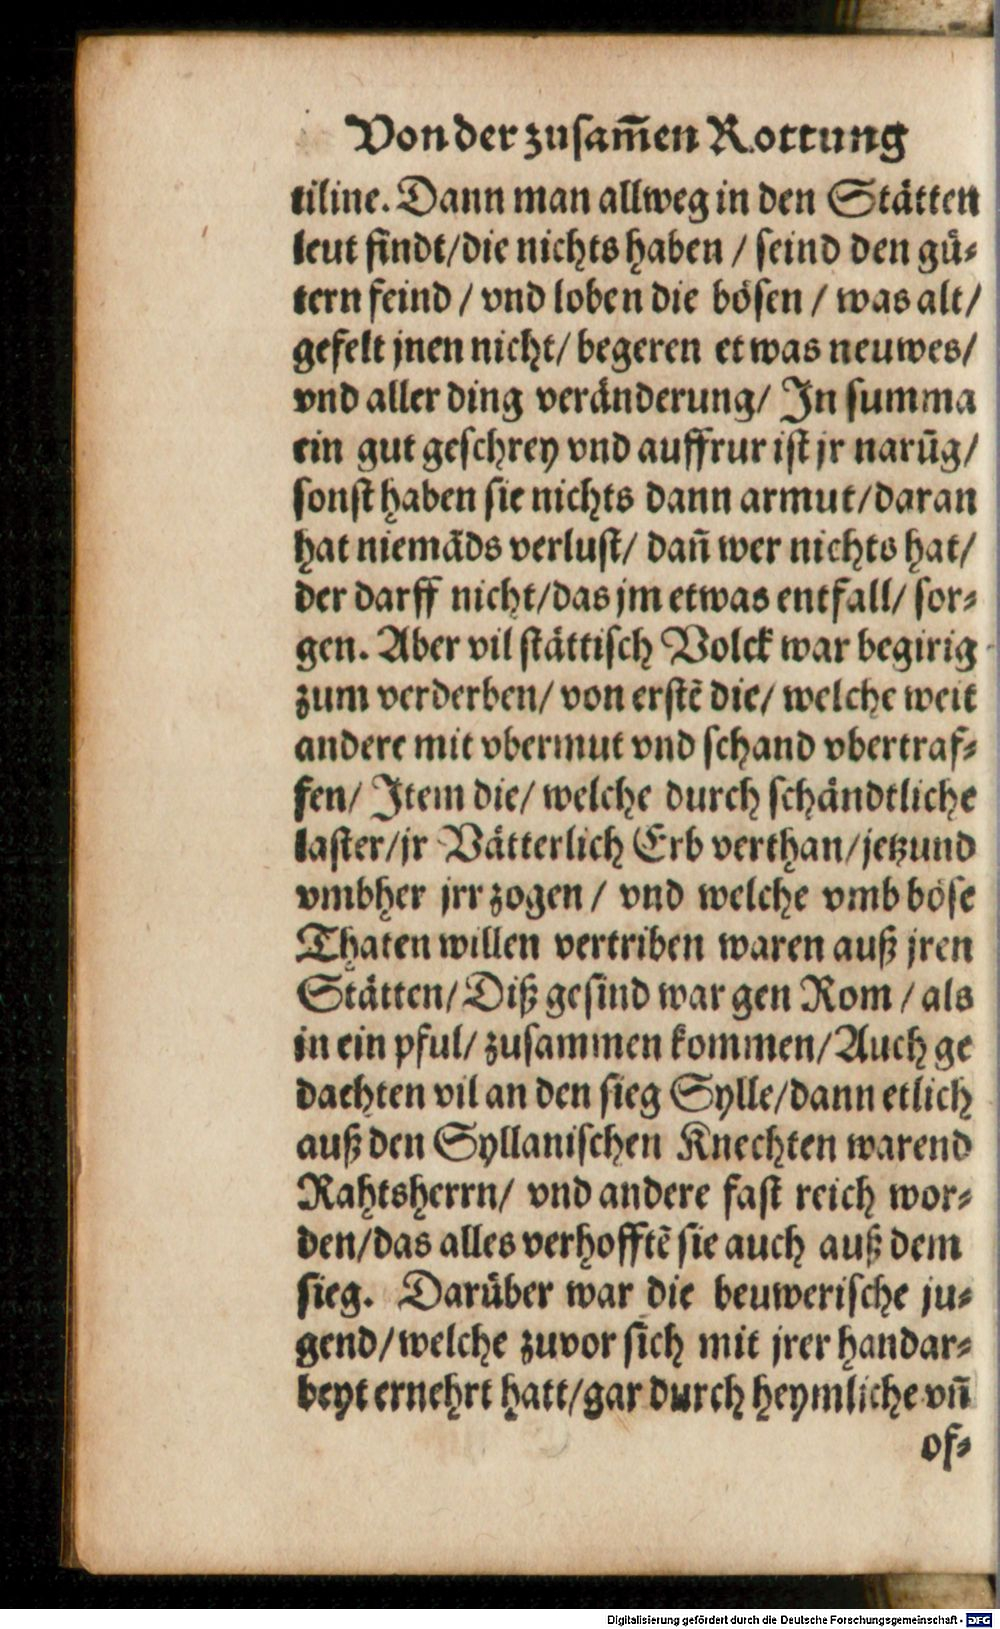 Von der zusam̃en Rottung
tiline. Dann man allweg in den Stätten
leut findt/die nichts haben / seind den gü⸗
tern feind / vnd loben die bösen / was alt/
gefelt jnen nicht/ begeren etwas neuwes/
vnd aller ding veränderung/ In summa
ein gut geschrey vnd auffrur ist jr narūg/
sonst haben sie nichts dann armut/daran
hat niemāds verlust/ dañ wer nichts hat/
der darff nicht/das jm etwas entfall/ sor⸗
gen. Aber vil stättisch Volck war begirig
zum verderben/ von erstē die/ welche weit
andere mit vbermut vnd schand vbertraf⸗
fen/ Item die/ welche durch schändtliche
laster/jr Vätterlich Erb verthan/jetzund
vmbher jrr zogen / vnd welche vmb böse
Thaten willen vertriben waren auß jren
Stätten/ Diß gesind war gen Rom / als
in ein pful/ zusammen kommen/Auch ge
dachten vil an den sieg Sylle/dann etlich
auß den Syllanischen Knechten warend
Rahtsherrn/ vnd andere fast reich wor⸗
den/das alles verhofftē sie auch auß dem
sieg. Darüber war die beuwerische ju⸗
gend/welche zuvor sich mit jrer handar⸗
beyt ernehrt hatt/gar durch heymliche vñ
of⸗
Digitalisierung gefördert durch die Deutsche Forschungsgemeinschaft - DFG